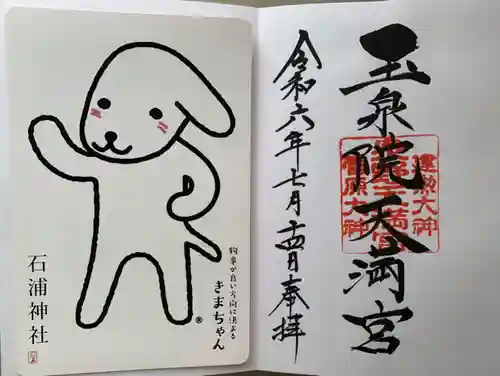 物事が良い方向に決まる
きまちゃん
®
石浦神社
玉泉院天満宮
建勲大神
菅原大神
令和六年七月十四日奉拝